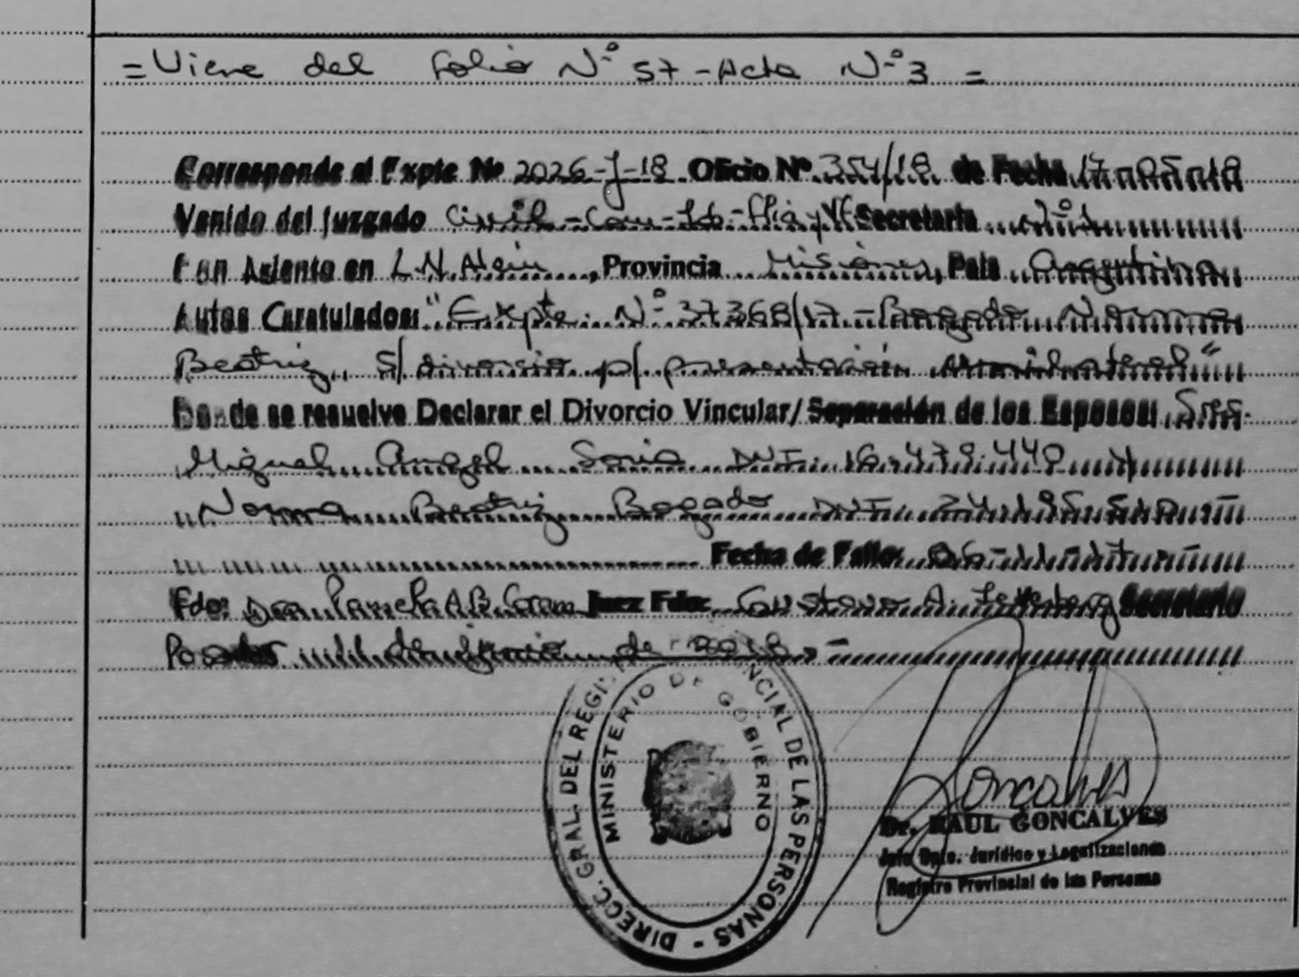 = Viene del Folio Nº 57 - Acta Nº 3 =
Corresponde al Expte Nº 2026-J-18 Oficio Nº 354/18 de Fecha 17-05-18
Venido del Juzgado Civil-Com-Lab-Flia y VF Secretaría Nº 1
Con Asiento en L.N. Alem, Provincia Misiones, País Argentina
Autos Caratulados: "Expte. Nº 37368/17 - Bogado Norma
Beatriz, s/ divorcio p/ presentación unilateral"
Donde se resuelve Declarar el Divorcio Vincular/Separación de los Esposos: Sres.
Miguel Angel Soria DNI. 16.479.440 y
Norma Beatriz Bogado DNI
Fecha de Fallo: 06-11-17
Fdo: Dra. Juez Fdo: Gustavo A. Secretario
Posadas de junio de 2018.-
DIRECC. GRAL. DEL REGI NCIAL DE LAS PERSONAS -
MINISTERIO DE GOBIERNO
Goncalves
Dr. RAUL GONCALVES
Jefe Dpto. Jurídico y Legalizaciones
Registro Provincial de las Personas